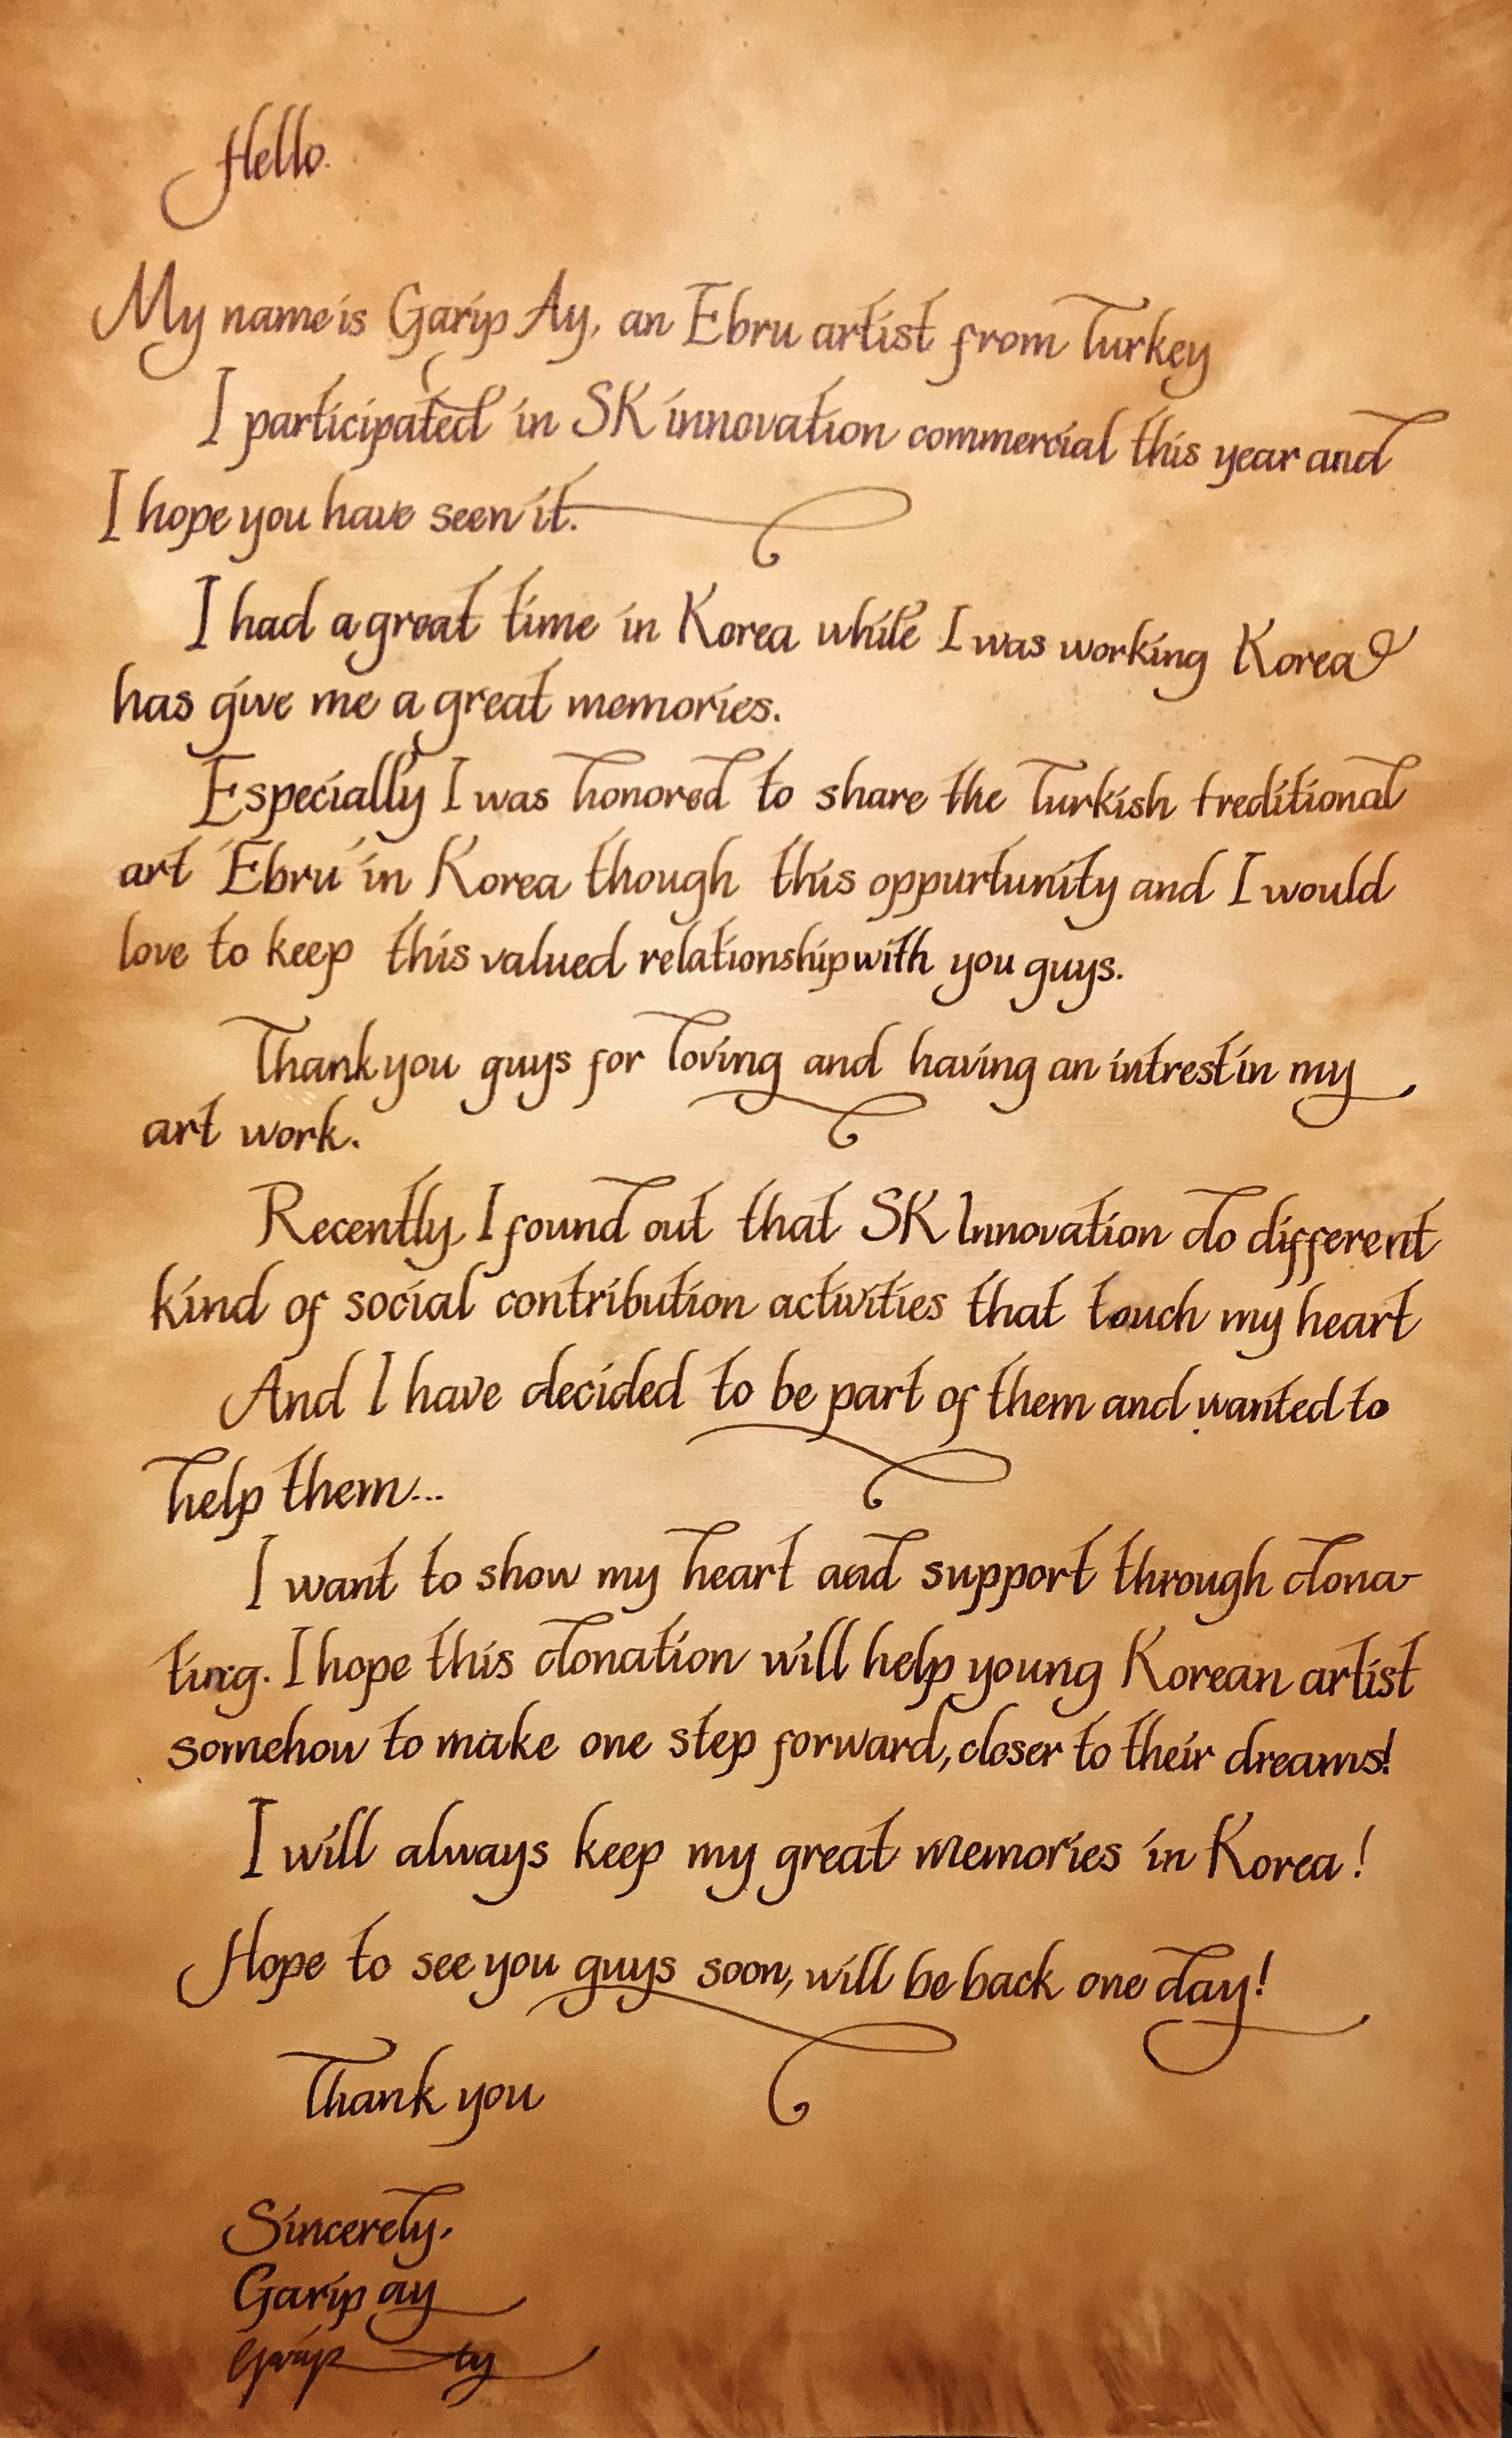 Hello.
My name is Garip Ay, an Ebru artist from Turkey
I participated in SK innovation commercial this year and
I hope you have seen it.
I had a great time in Korea while I was working Korea
has give me a great memories.
Especially I was honored to share the Turkish treditional
art 'Ebru' in Korea though this oppurtunity and I would
love to keep this valued relationship with you guys.
Thank you guys for loving and having an intrest in my
art work.
Recently, I found out that SK Innovation do different
kind of social contribution activities that touch my heart
And I have decided to be part of them and wanted to
help them...
I want to show my heart and support through dona-
ting. I hope this donation will help young Korean artist
somehow to make one step forward, closer to their dreams!
I will always keep my great memories in Korea!
Hope to see you guys soon, will be back one day!
Thank you
Sincerely,
Garip ay
Garip Ay